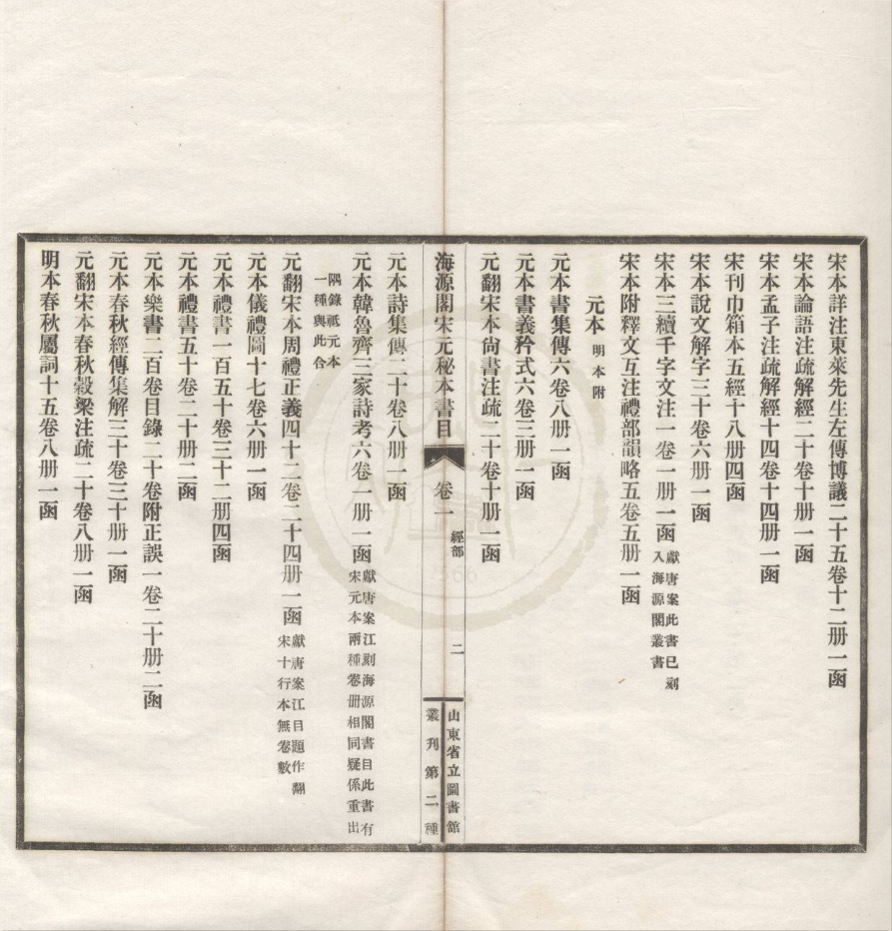 宋本詳注東萊先生左傳博議二十五卷十二册一函
宋本論語注疏解經二十卷十册一函
宋本孟子注疏解經十四卷十四册一函
宋刊巾箱本五經十八册四函
宋本說文解字三十卷六册一函
宋本三續千字文注一卷一册一函獻唐案此書已刻
入海源閣叢書
宋本附釋文互注禮部韻略五卷五册一函
元本明本附
元本書集傳六卷八册一函
元本書義矜式六卷三册一函
元翻宋本尙書注疏二十卷十册一函
海源閣宋元秘本書目
卷一
經部
二
山東省立圖書館
叢刊第二種
元本詩集傳二十卷八册一函
元本韓魯齊三家詩考六卷一册一函獻唐案江刻海源閣書目此書有
宋元本兩種卷册相同疑係重出
隅錄祇元本
一種與此合
元翻宋本周禮正義四十二卷二十四册一函獻唐案江目題作翻
宋十行本無卷數
元本儀禮圖十七卷六册一函
元本禮書一百五十卷三十二册四函
元本禮書五十卷二十册二函
元本樂書二百卷目錄二十卷附正誤一卷二十册二函
元本春秋經傳集解三十卷三十册一函
元翻宋本春秋穀梁注疏二十卷八册一函
明本春秋屬詞十五卷八册一函